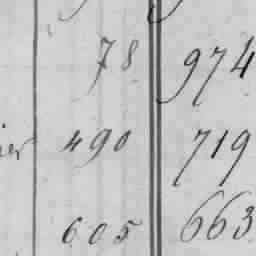 78 974
490 719
605 663